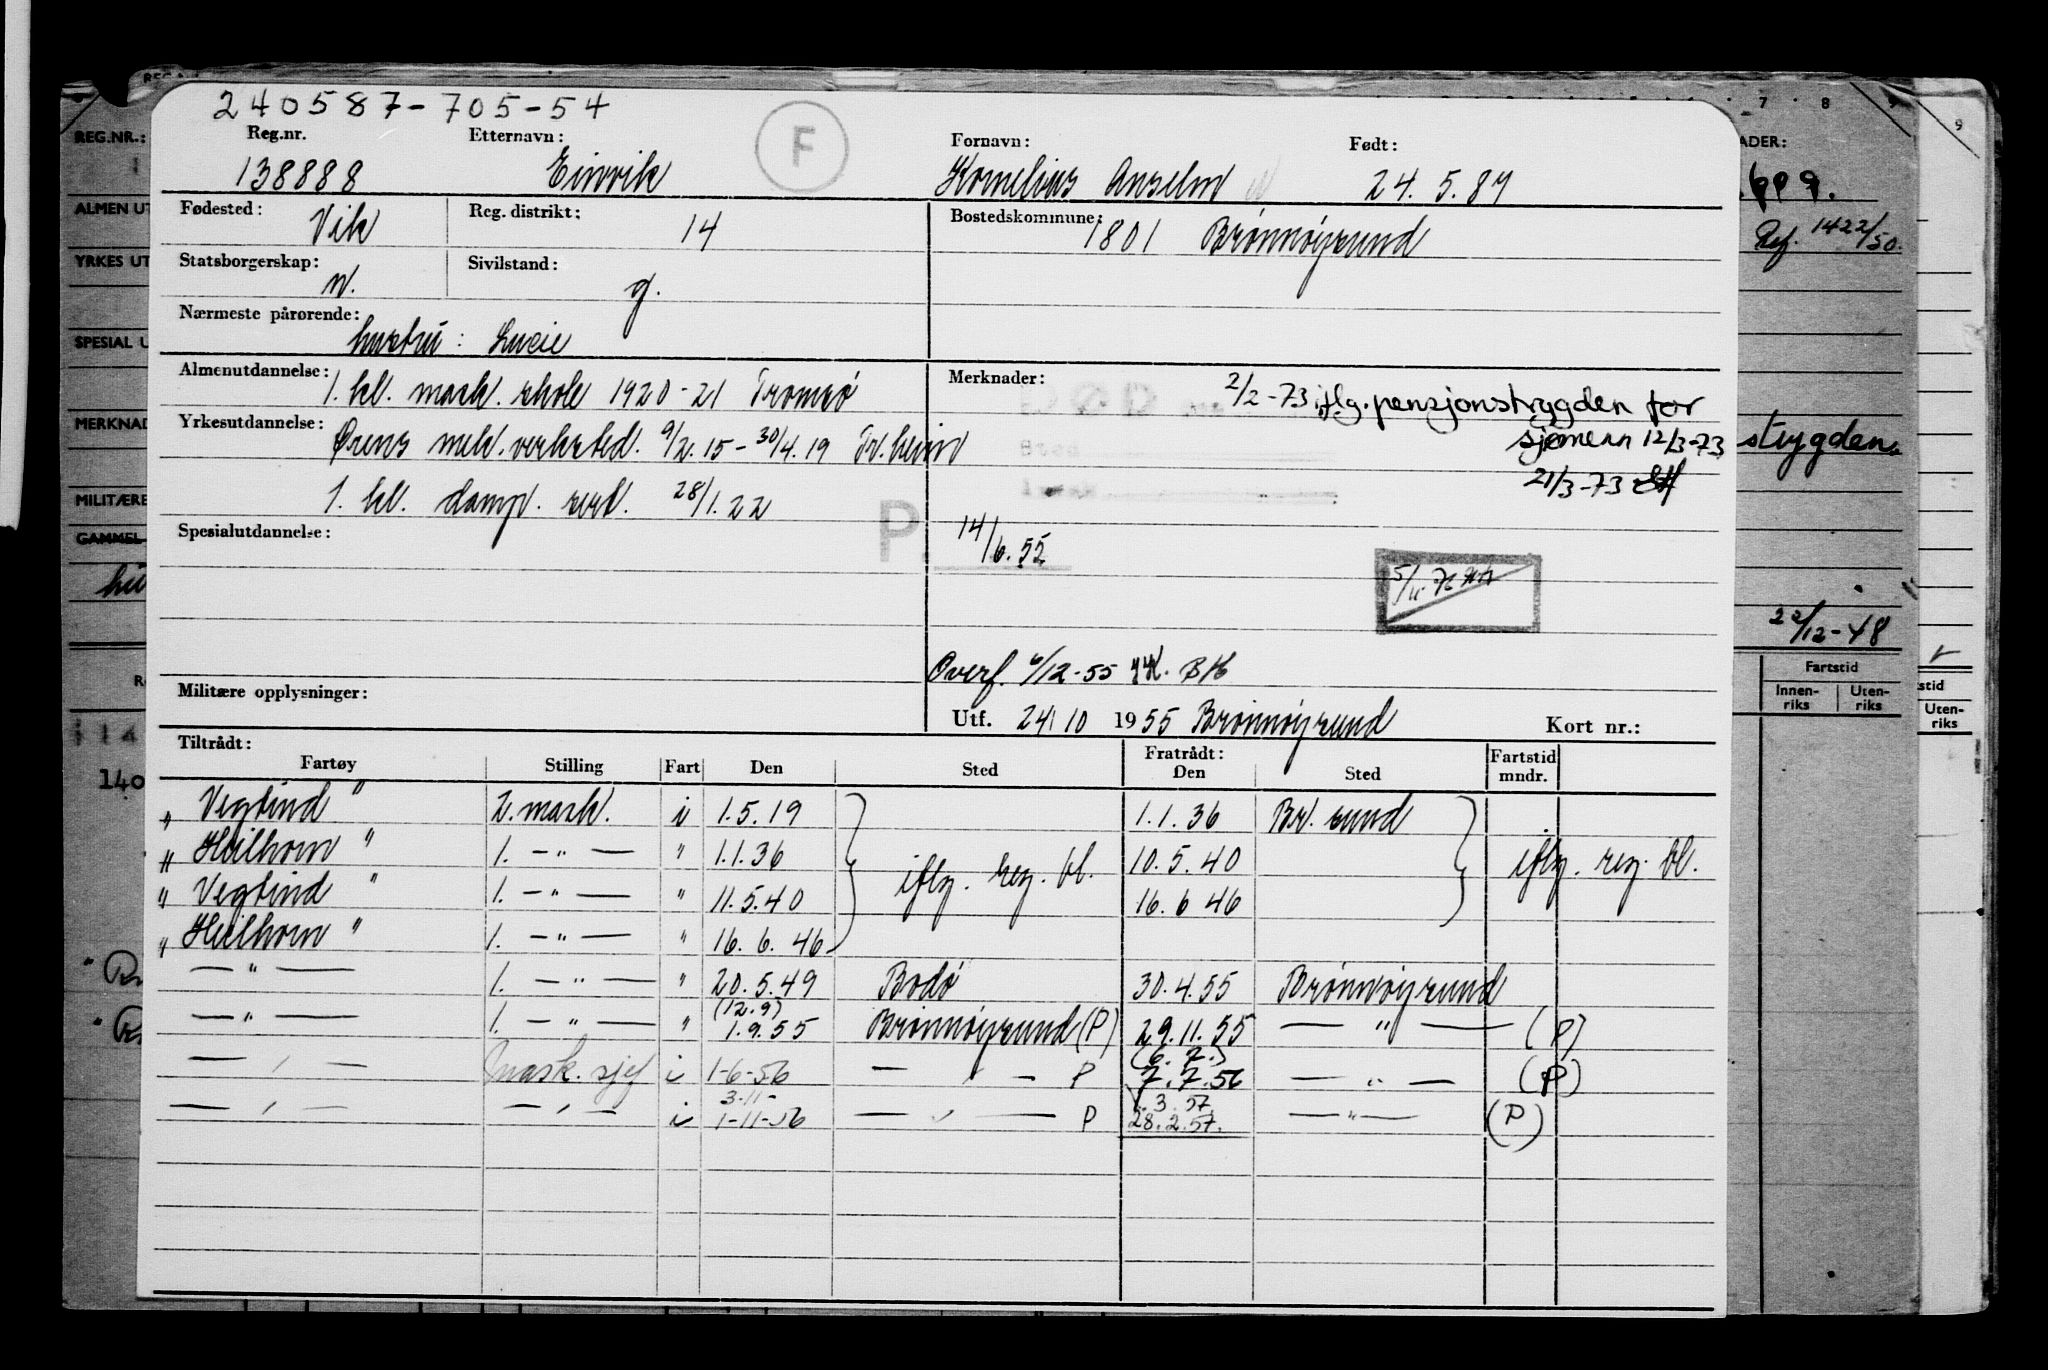 240587-705-54
F
Reg.nr. Etternavn: Fornavn: Født:
138888 Einvik Kornelius Anselm 24.5.87
Fødested: Vik Reg. distrikt: 14 Bostedskommune: 1801 Brønnøysund
Statsborgerskap: n. Sivilstand: g.
Nærmeste pårørende:
hustru: Lucie
Almenutdannelse: 1. kl. mask. skole 1920-21 Tromsø
Merknader: DØD 2/2-73 iflg. pensjonstrygden for
sjømenn 12/3-73
21/3-73
Yrkesutdannelse: Ørens mek. verksted. 9/2.15 - 30/4.19 Tr.heim
1. kl. damp. sert. 28/1.22
Spesialutdannelse:
P. 14/6.55
Overf. 6/12-55
Militære opplysninger:
Utf. 24/10 1955 Brønnøysund Kort nr.:
Tiltrådt: Fratrådt:
Fartøy Stilling Fart Den Sted Den Sted Fartstid mndr.
"Vegtind" 2. mask. i 1.5.19 1.1.36 Br. sund
"Heilhorn" 1. —"— " 1.1.36 iflg. reg. bl. 10.5.40 iflg. reg. bl.
"Vegtind" 1. —"— " 11.5.40 16.6 46
"Heilhorn" 1. —"— " 16.6.46
—"— 1. —"— " 20.5.49 Bodø 30.4.55 Brønnøysund
—"— 1. —"— " (12.9) 1.9.55 Brønnøysund (P) 29.11.55 —"— (P)
—"— Mask. sjef i 1-6-56 —"— P (6.7.) 7.7.56 —"— (P)
—"— —"— i 3-11- 1-11-56 —"— P 1.3.57 28.2.57. —"— (P)
REG.NR.:
ALMEN UT
YRKES UT
SPESIAL U
MERKNAD
MILITÆRE
GAMMEL
140
7 8 9
9
ADER:
Ref. 1422/50.
stygden.
22/12-48
Fartstid
Innen-riks Uten-riks
stid
Uten-riks